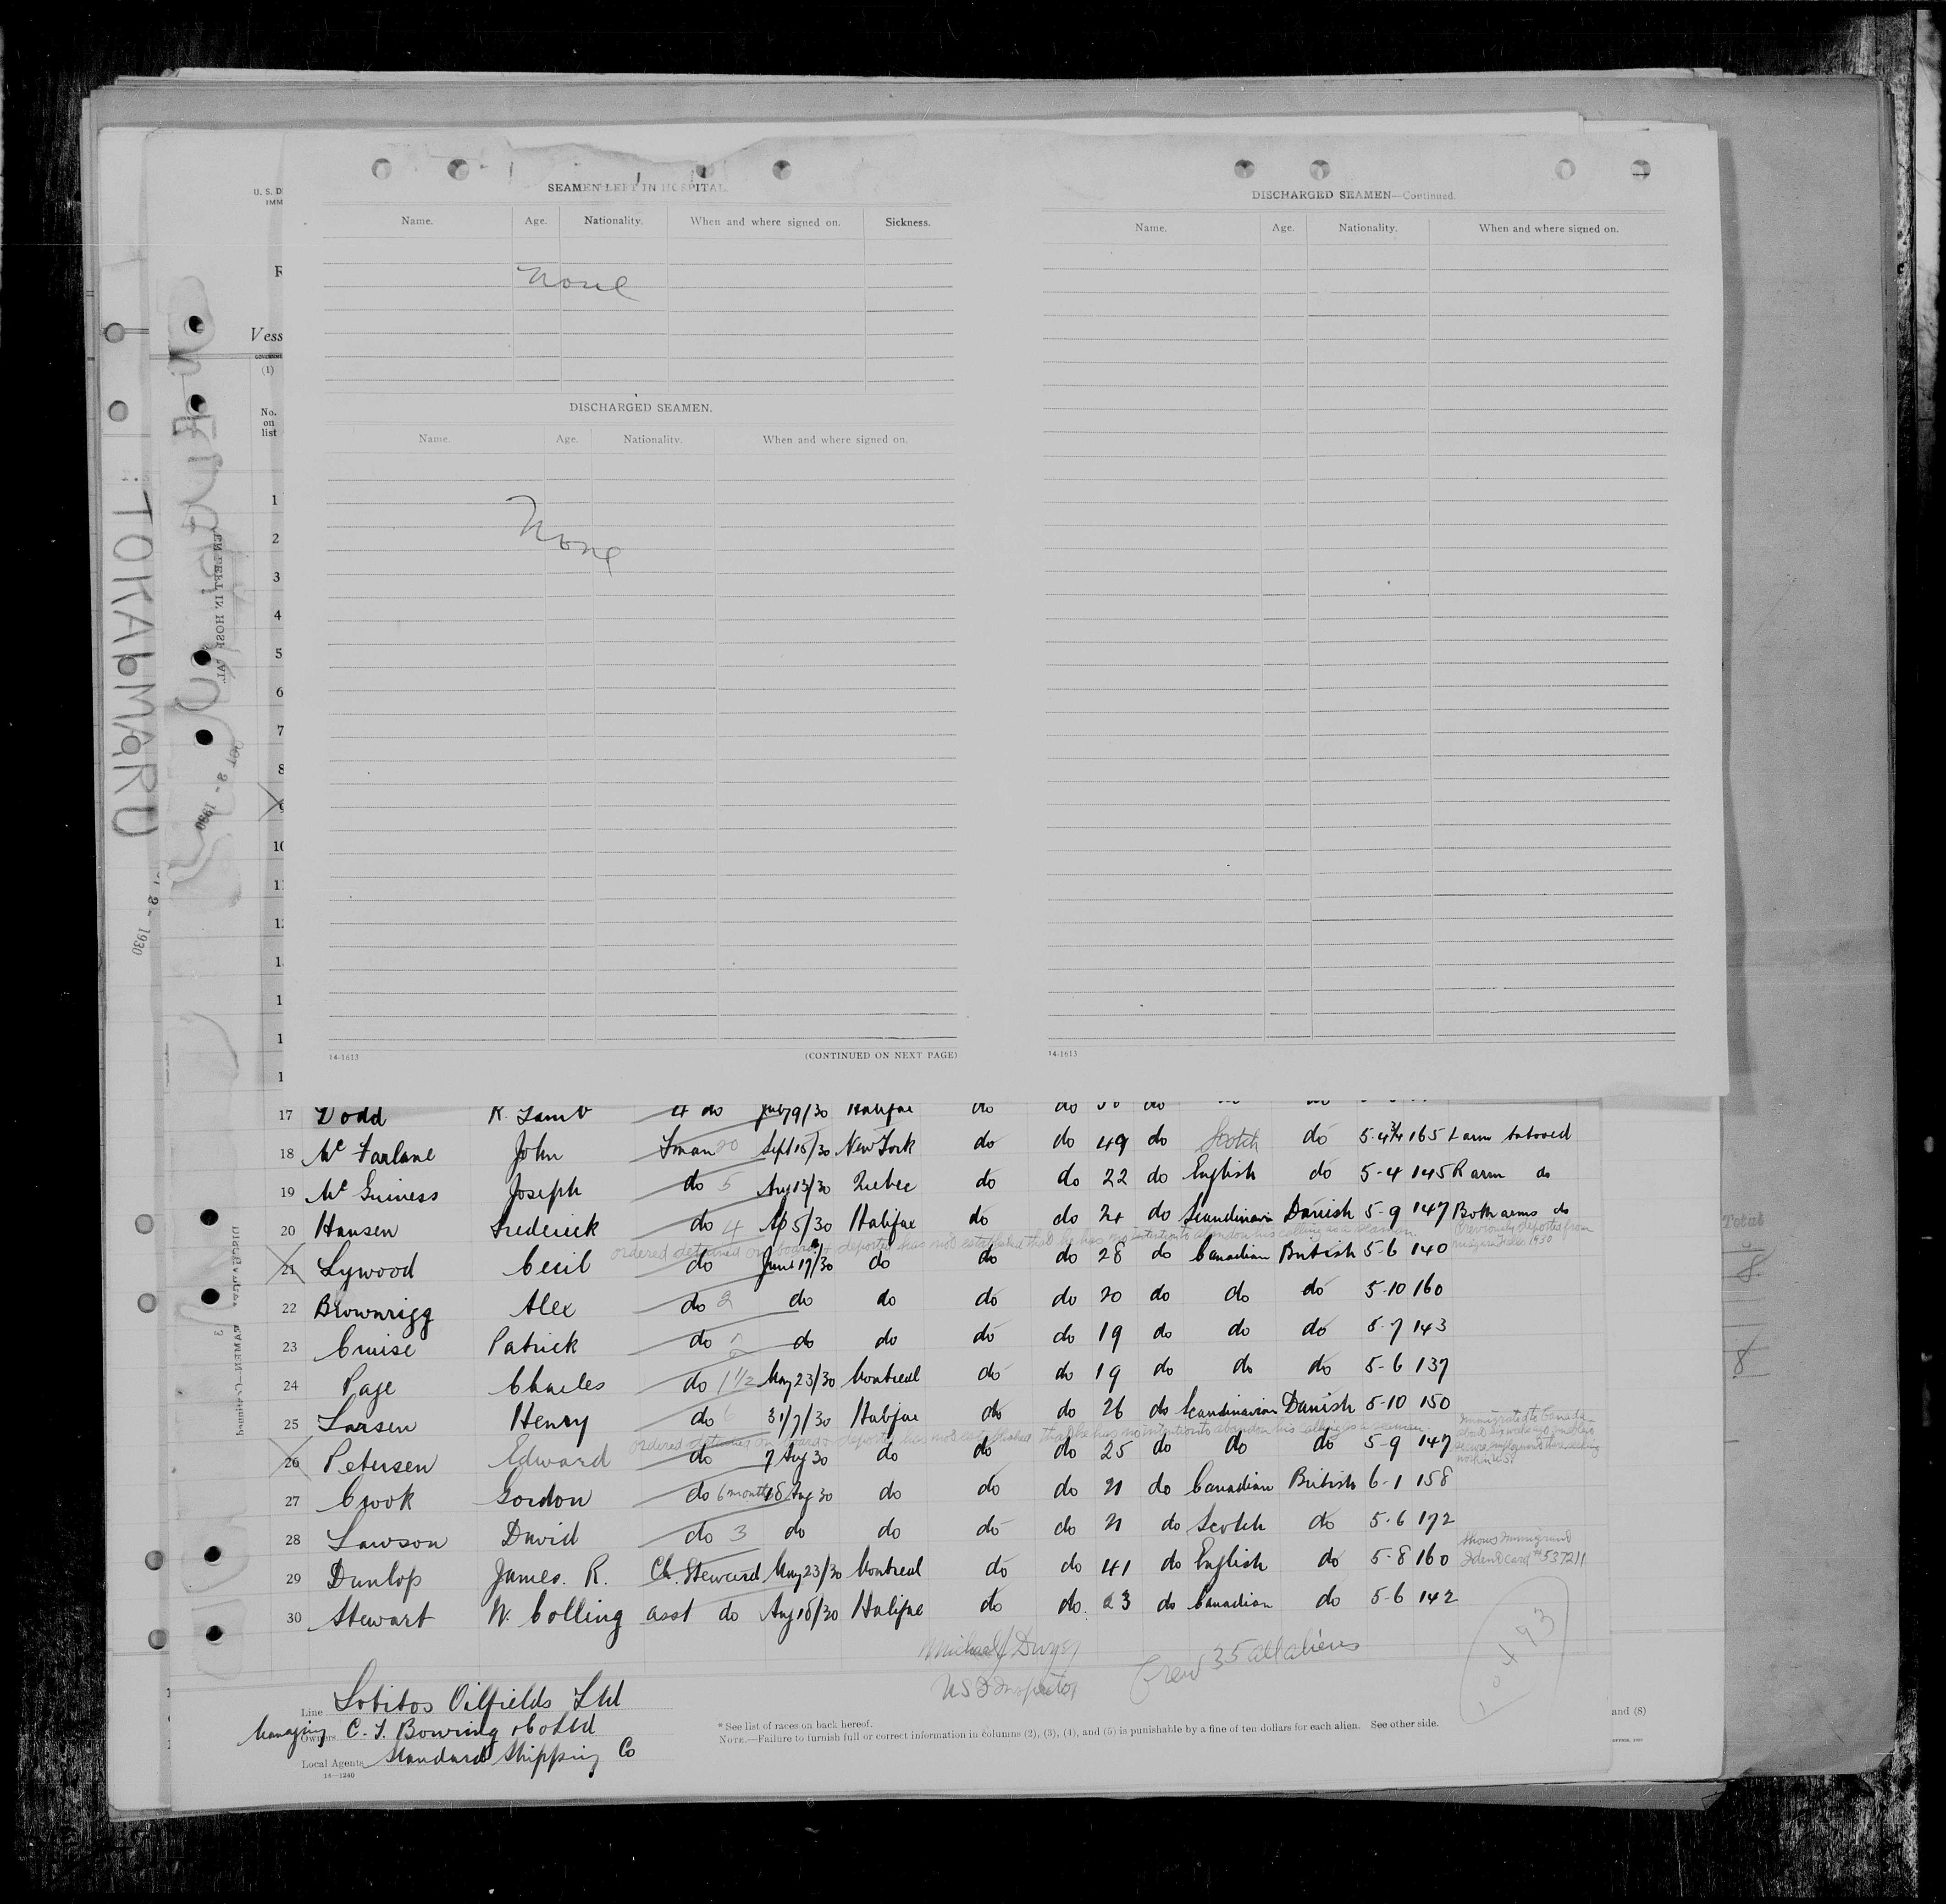 U. S. D
IMM
SEAMEN LEFT IN HOSPITAL
Name. Age. Nationality. When and where signed on. Sickness.
None
DISCHARGED SEAMEN.
Name. Age. Nationality. When and where signed on.
None
14-1613 (CONTINUED ON NEXT PAGE)
DISCHARGED SEAMEN—Continued.
Name. Age. Nationality. When and where signed on.
14-1613
Vess
(1)
No. on list
1
2
3
4
5
6
7
8
TOKAI MARU
17 Dodd R. Lamb 4 do July 9/30 Halifax do do do
18 Mc Farlane John Fman 20 Sept 15/30 New York do do 49 do Scotch do 5-4¾ 165 L arm tatooed
19 Mc Guiness Joseph do 5 Aug 13/30 Quebec do do 22 do English do 5-4 145 R arm do
20 Hansen Frederick do 4 Ap 5/30 Halifax do do 24 do Scandinavian Danish 5-9 147 Both arms do
ordered detained on board & deported has not established that he has no intention to abandon his calling as a seaman
21 Lywood Cecil do June 17/30 do do do 28 do Canadian British 5-6 140
22 Brownrigg Alex do 2 do do do do 20 do do do 5-10 160
23 Cruise Patrick do 2 do do do do 19 do do do 5-7 143
24 Page Charles do 1 1/2 May 23/30 Montreal do do 19 do do do 5-6 137
25 Larsen Henry do 6 31/7/30 Halifax do do 26 do Scandinavian Danish 5-10 150
ordered detained on board & deported has not established that he has no intention to abandon his calling as a seaman
26 Petersen Edward do 7 Aug 30 do do do 25 do do do 5-9 147
27 Crook Gordon do 6 months 18 Aug 30 do do do 21 do Canadian British 6-1 158
28 Lawson David do 3 do do do do 21 do Scotch do 5-6 172
29 Dunlop James. R. Ch. Steward May 23/30 Montreal do do 41 do English do 5-8 160 Shows Immigrant Ident card
30 Stewart W. Colling asst do Aug 18/30 Halifax do do 23 do Canadian do 5-6 142
Michael J Dwyer
US Inspector
Crew 35 all aliens
10493
Line Lobitos Oilfields Ltd
Managing Owners C. T. Bowring & Co Ltd
Local Agents Standard Shipping Co
14—1240
* See list of races on back hereof.
NOTE.—Failure to furnish full or correct information in columns (2), (3), (4), and (5) is punishable by a fine of ten dollars for each alien. See other side.
and (8)
Total
8
8